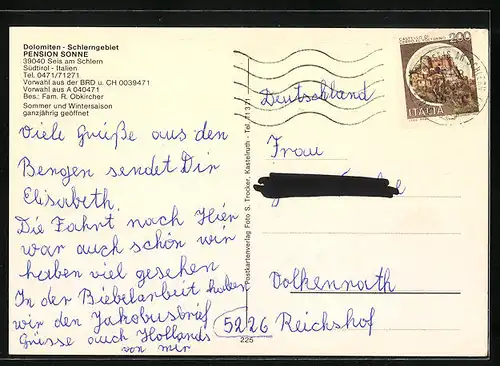 Dolomiten - Schlerngebiet
PENSION SONNE
39040 Seis am Schlern
Südtirol - Italien
Tel. 0471/71271
Vorwahl aus der BRD u. CH 0039471
Vorwahl aus A 040471
Bes.: Fam. R. Obkircher
Sommer und Wintersaison
ganzjährig geöffnet
Viele Grüße aus den
Bergen sendet Dir
Elisabeth.
Die Fahrt nach Hier
war auch schön wir
haben viel gesehen
In der Bibelarbeit haben
wir den Jakobusbrif
Grüsse auch Hollands
von mir
Postkartenverlag Foto S. Trocker, Kastelruth - Tel. 71 3 71
225
200
ITALIA
Deutschland
Frau
Volkenrath
5226 Reichshof